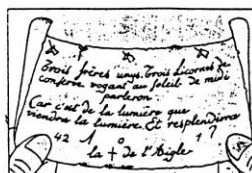 Trois frères unys. Trois Licornes de
conserve vogant au soleil de midi
parleron
Car c'est de la lumière que
viendra la lumière. Et resplendira
42 1 0 1 7
la † de l'Aigle